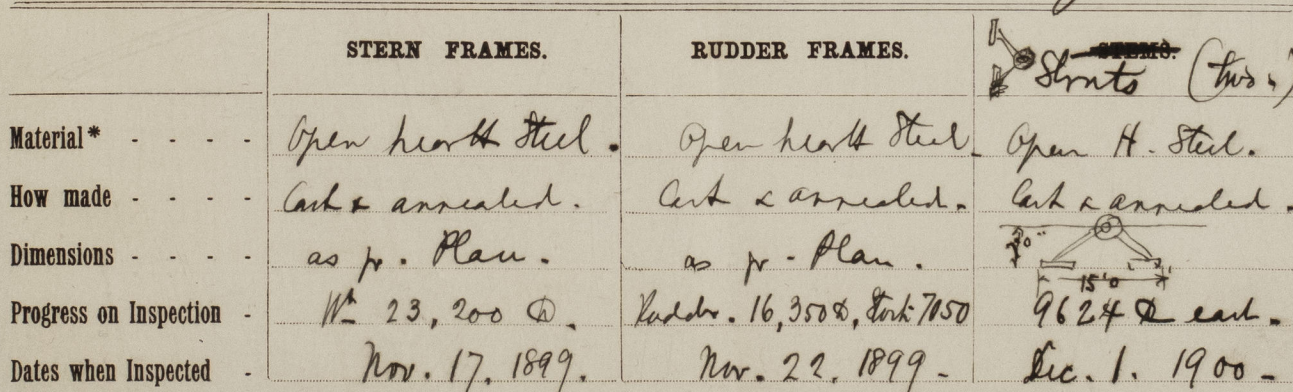 STERN FRAMES. RUDDER FRAMES. STEMS. Struts (two.)
Material* - - - - Open hearth Steel. Open hearth Steel. Open H. Steel.
How made - - - - Cast & annealed. Cast & annealed. Cast & annealed.
Dimensions - - - - as pr. Plan. as pr. Plan. 15'0"
Progress on Inspection - Wt 23,200 lb. Rudder. 16,350 lb, Stock 7050 9624 lb each.
Dates when Inspected - Nov. 17. 1899. Nov. 22. 1899 - Dec. 1. 1900 -